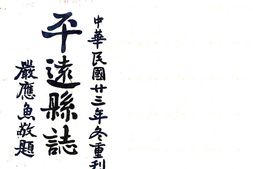 中華民國廿三年冬重刋
平遠縣誌
嚴應魚敬題